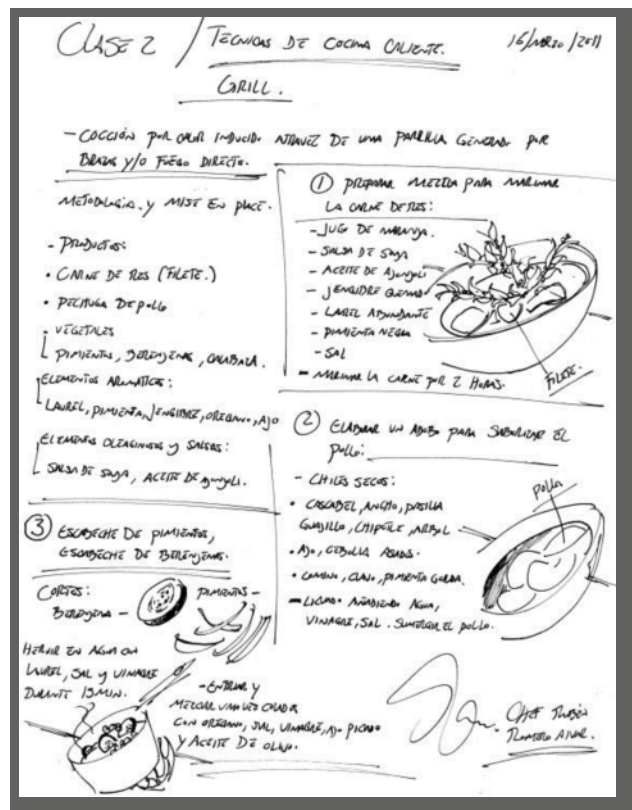 CLASE 2 / TECNICAS DE COCINA CALIENTE.
16/MARZO/2011
GRILL.
- COCCIÓN POR CALOR INDUCIDO ATRAVEZ DE UMA PARRILLA GENERADO POR
BRAZAS Y/O FUEGO DIRECTO.
METODOLOGIA. Y MISE EN PLACE.
- PRODUCTOS:
• CARNE DE RES (FILETE.)
• PECHUGA DE POLLO
• VEGETALES
PIMIENTOS, BERENJENAS, CALABAZA.
ELEMENTOS AROMATICOS:
LAUREL, PIMIENTA, JENGIBRE, OREGANO, AJO
ELEMENTOS OLEAGINOSOS Y SALSAS:
SALSA DE SOYA, ACEITE DE AJONJOLI.
① PREPARAR MEZCLA PARA MARINAR
LA CARNE DE RES:
- JUGO DE NARANJA.
- SALSA DE SOYA
- ACEITE DE AJONJOLI
- JENGIDRE
- LAUREL ABUNDANTE
- PIMIENTA NEGRA
- SAL
- MARINAR LA CARNE POR 2 HORAS.
FILETE.
② ELABORAR UN ADOBO PARA SABORIZAR EL
POLLO:
- CHILES SECOS:
• CASCABEL, ANCHO, PASILLA
GUAJILLO, CHIPOTLE, ARBOL
• AJO, CEBOLLA ASADOS.
• COMINO, CLAVO, PIMIENTA GORDA.
- LICUADO AÑADIENDO AGUA,
VINAGRE, SAL. SUMERGIR EL POLLO.
POLLO
③ ESCABECHE DE PIMIENTOS,
ESCABECHE DE BERENJENAS.
CORTES:
BERENJENA -
PIMIENTOS -
HERVIR EN AGUA CON
LAUREL, SAL Y VINAGRE
DURANTE 15 MIN.
- ENFRIAR Y
MEZCLAR UNA VEZ COLADOS
CON OREGANO, SAL, VINAGRE, AJO PICADO
Y ACEITE DE OLIVO.
CHEF RUBÉN
ROMERO